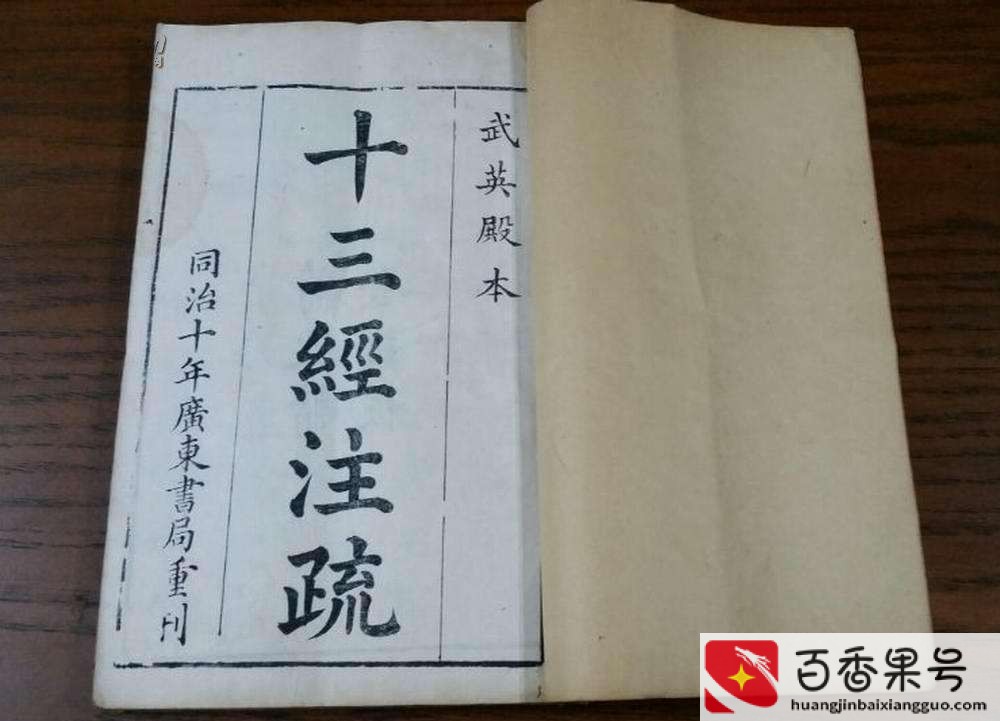 武英殿本
十三經注疏
同治十年廣東書局重刊
百香果号
huangjinbaixiangguo.com